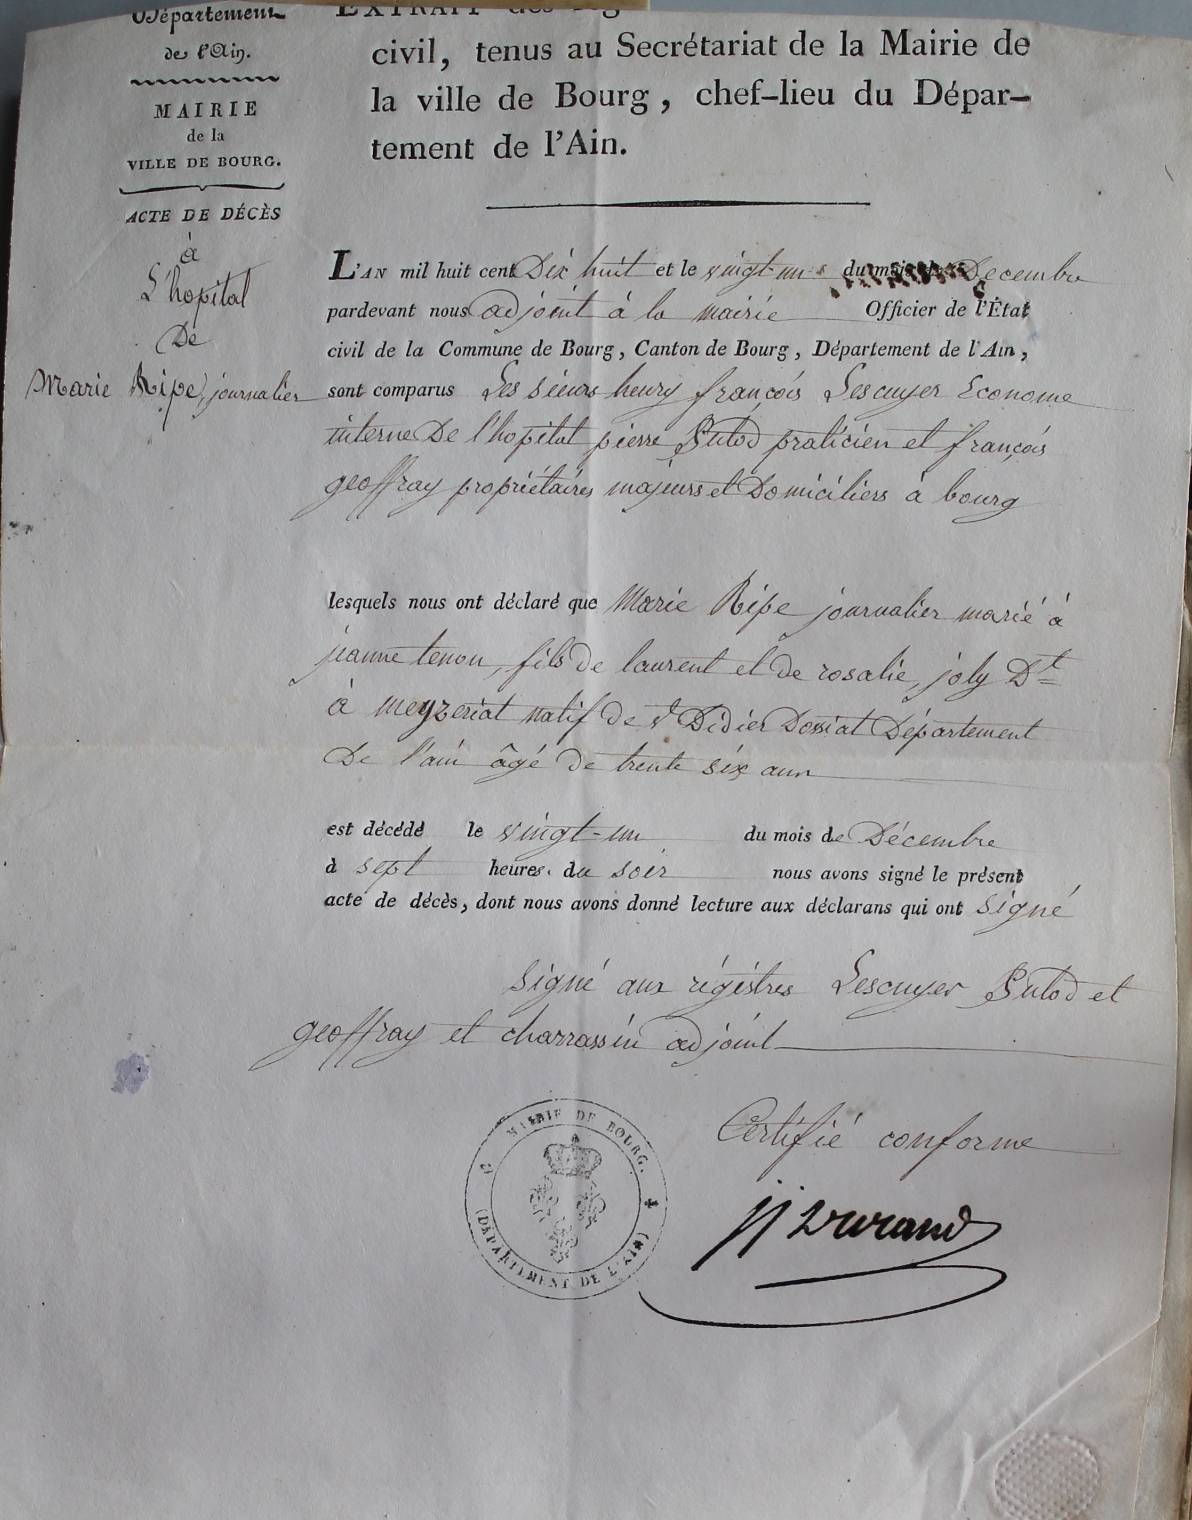 Département
de l'Ain.
MAIRIE
de la
VILLE DE BOURG.
ACTE DE DÉCÈS
à
L'hopital
De
Marie Ripe, journalier
EXTRAIT des
civil, tenus au Secrétariat de la Mairie de
la ville de Bourg, chef-lieu du Dépar-
tement de l'Ain.
L'AN mil huit cent Dix huit et le vingt-un du mois Decembre
pardevant nous adjoint à la mairie Officier de l'État
civil de la Commune de Bourg, Canton de Bourg, Département de l'Ain,
sont comparus Les sieurs henry françois Lescuyer Econome
interne De l'hopital pierre Putod praticien et françois
geoffray propriétaires majeurs et Domiciliers à bourg
lesquels nous ont déclaré que Marie Ripe journalier marié à
jeanne tenon, fils de laurent et de rosalie, joly Dt
à meyzeriat natif de st Didier Dossiat Département
De l'ain âgé de trente six ans
est décédé le vingt-un du mois de Décembre
à sept heures du soir nous avons signé le présent
acte de décès, dont nous avons donné lecture aux déclarans qui ont signé
Signé aux régistres Lescuyer Putod et
geoffray et charrassin adjoint
Certifié conforme
jj Durand
MAIRIE DE BOURG.
(DÉPARTEMENT DE L'AIN)